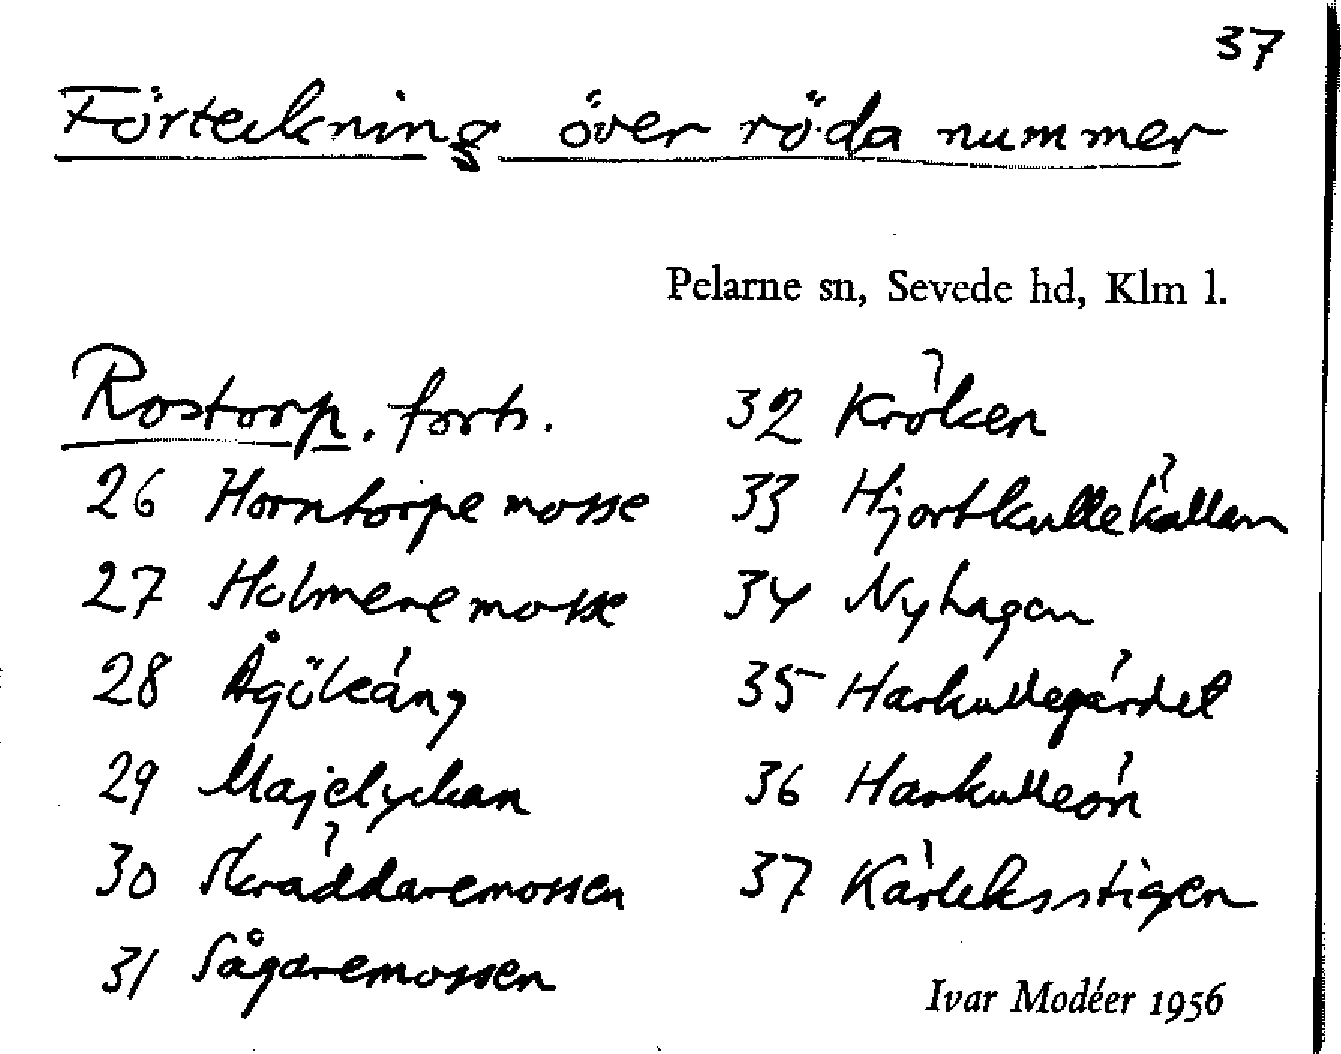 37
Förteckning över röda nummer
Pelarne sn, Sevede hd, Klm l.
Rostorp. forts.
26 Horntorpe mosse
27 Holmere mosse
28 Ågöleäng
29 Majelyckan
30 Skräddaremossen
31 Sågaremossen
32 Kröken
33 Hjortkullekällan
34 Nyhagen
35 Harkullegärdet
36 Harkulleön
37 Kärleksstigen
Ivar Modéer 1956